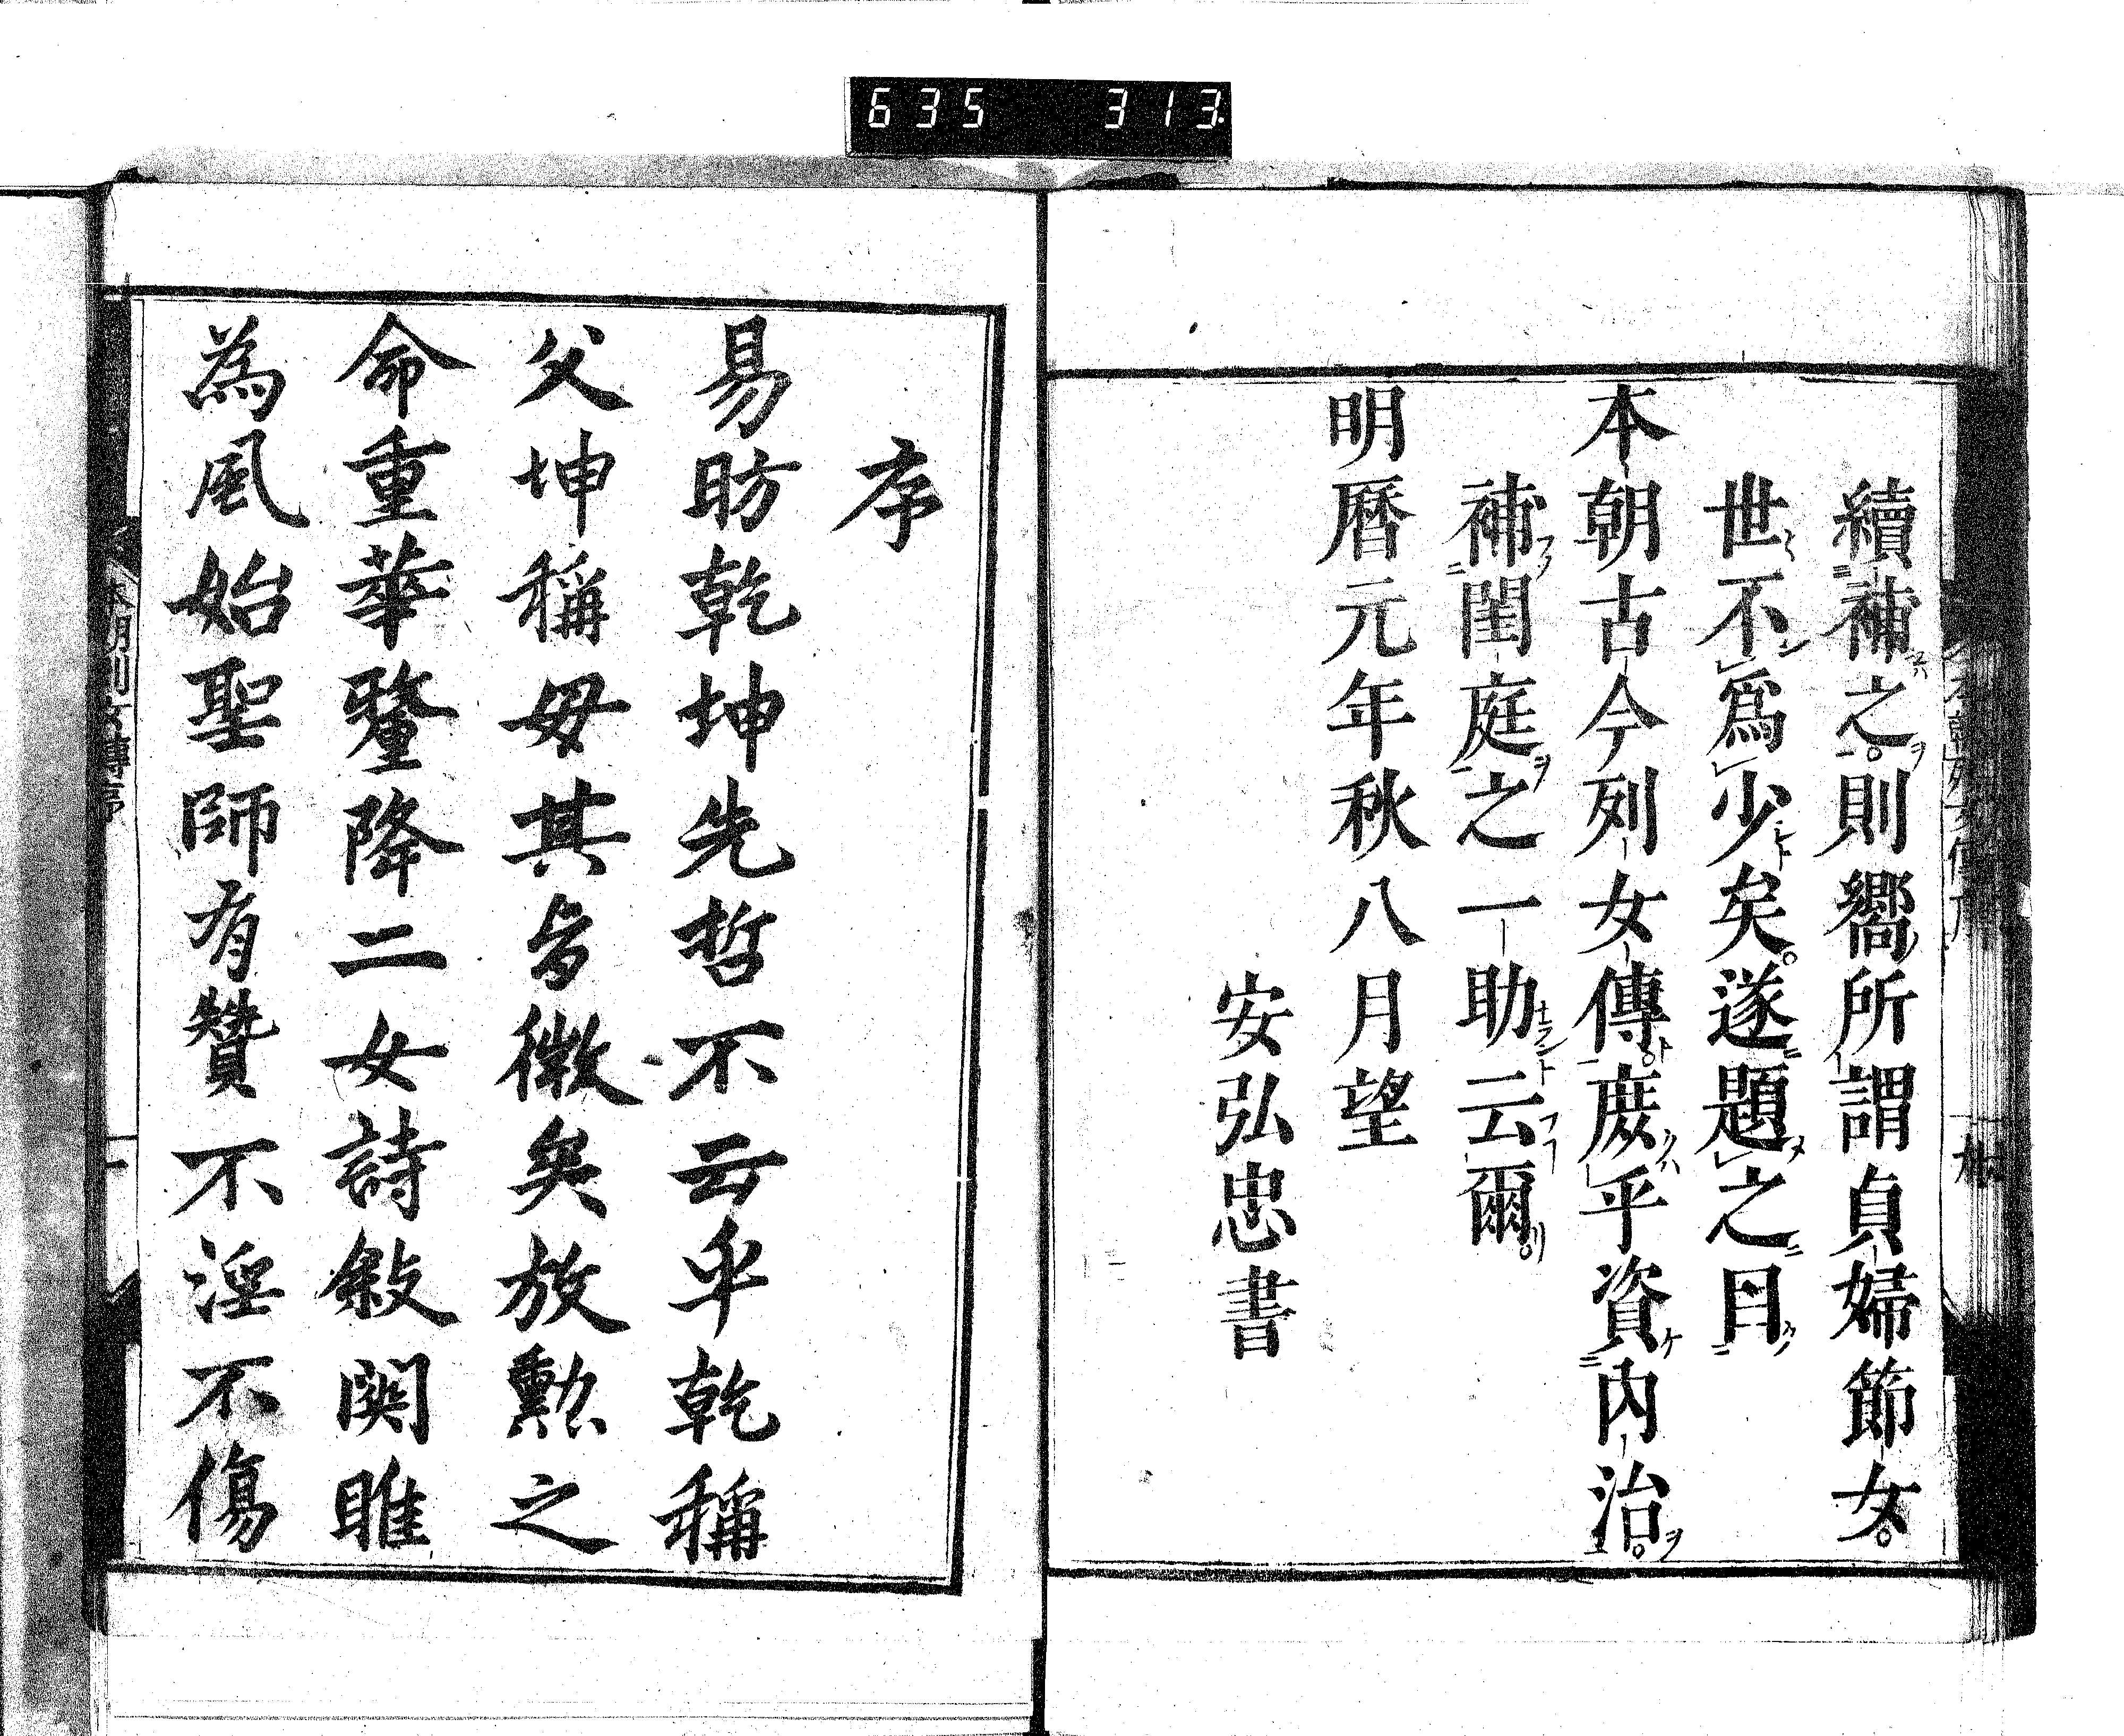 635 313
續補之則嚮所謂貞婦節女
世不爲少矣遂題之目
本朝古今列女傳庶乎資內治
補閨庭之一助云爾
明曆元年秋八月望
安弘忠書
序
易昉乾坤先哲不云乎乾稱
父坤稱毋其旨微矣放勲之
命重華釐降二女詩敍関雎
為風始聖師有贊不淫不傷